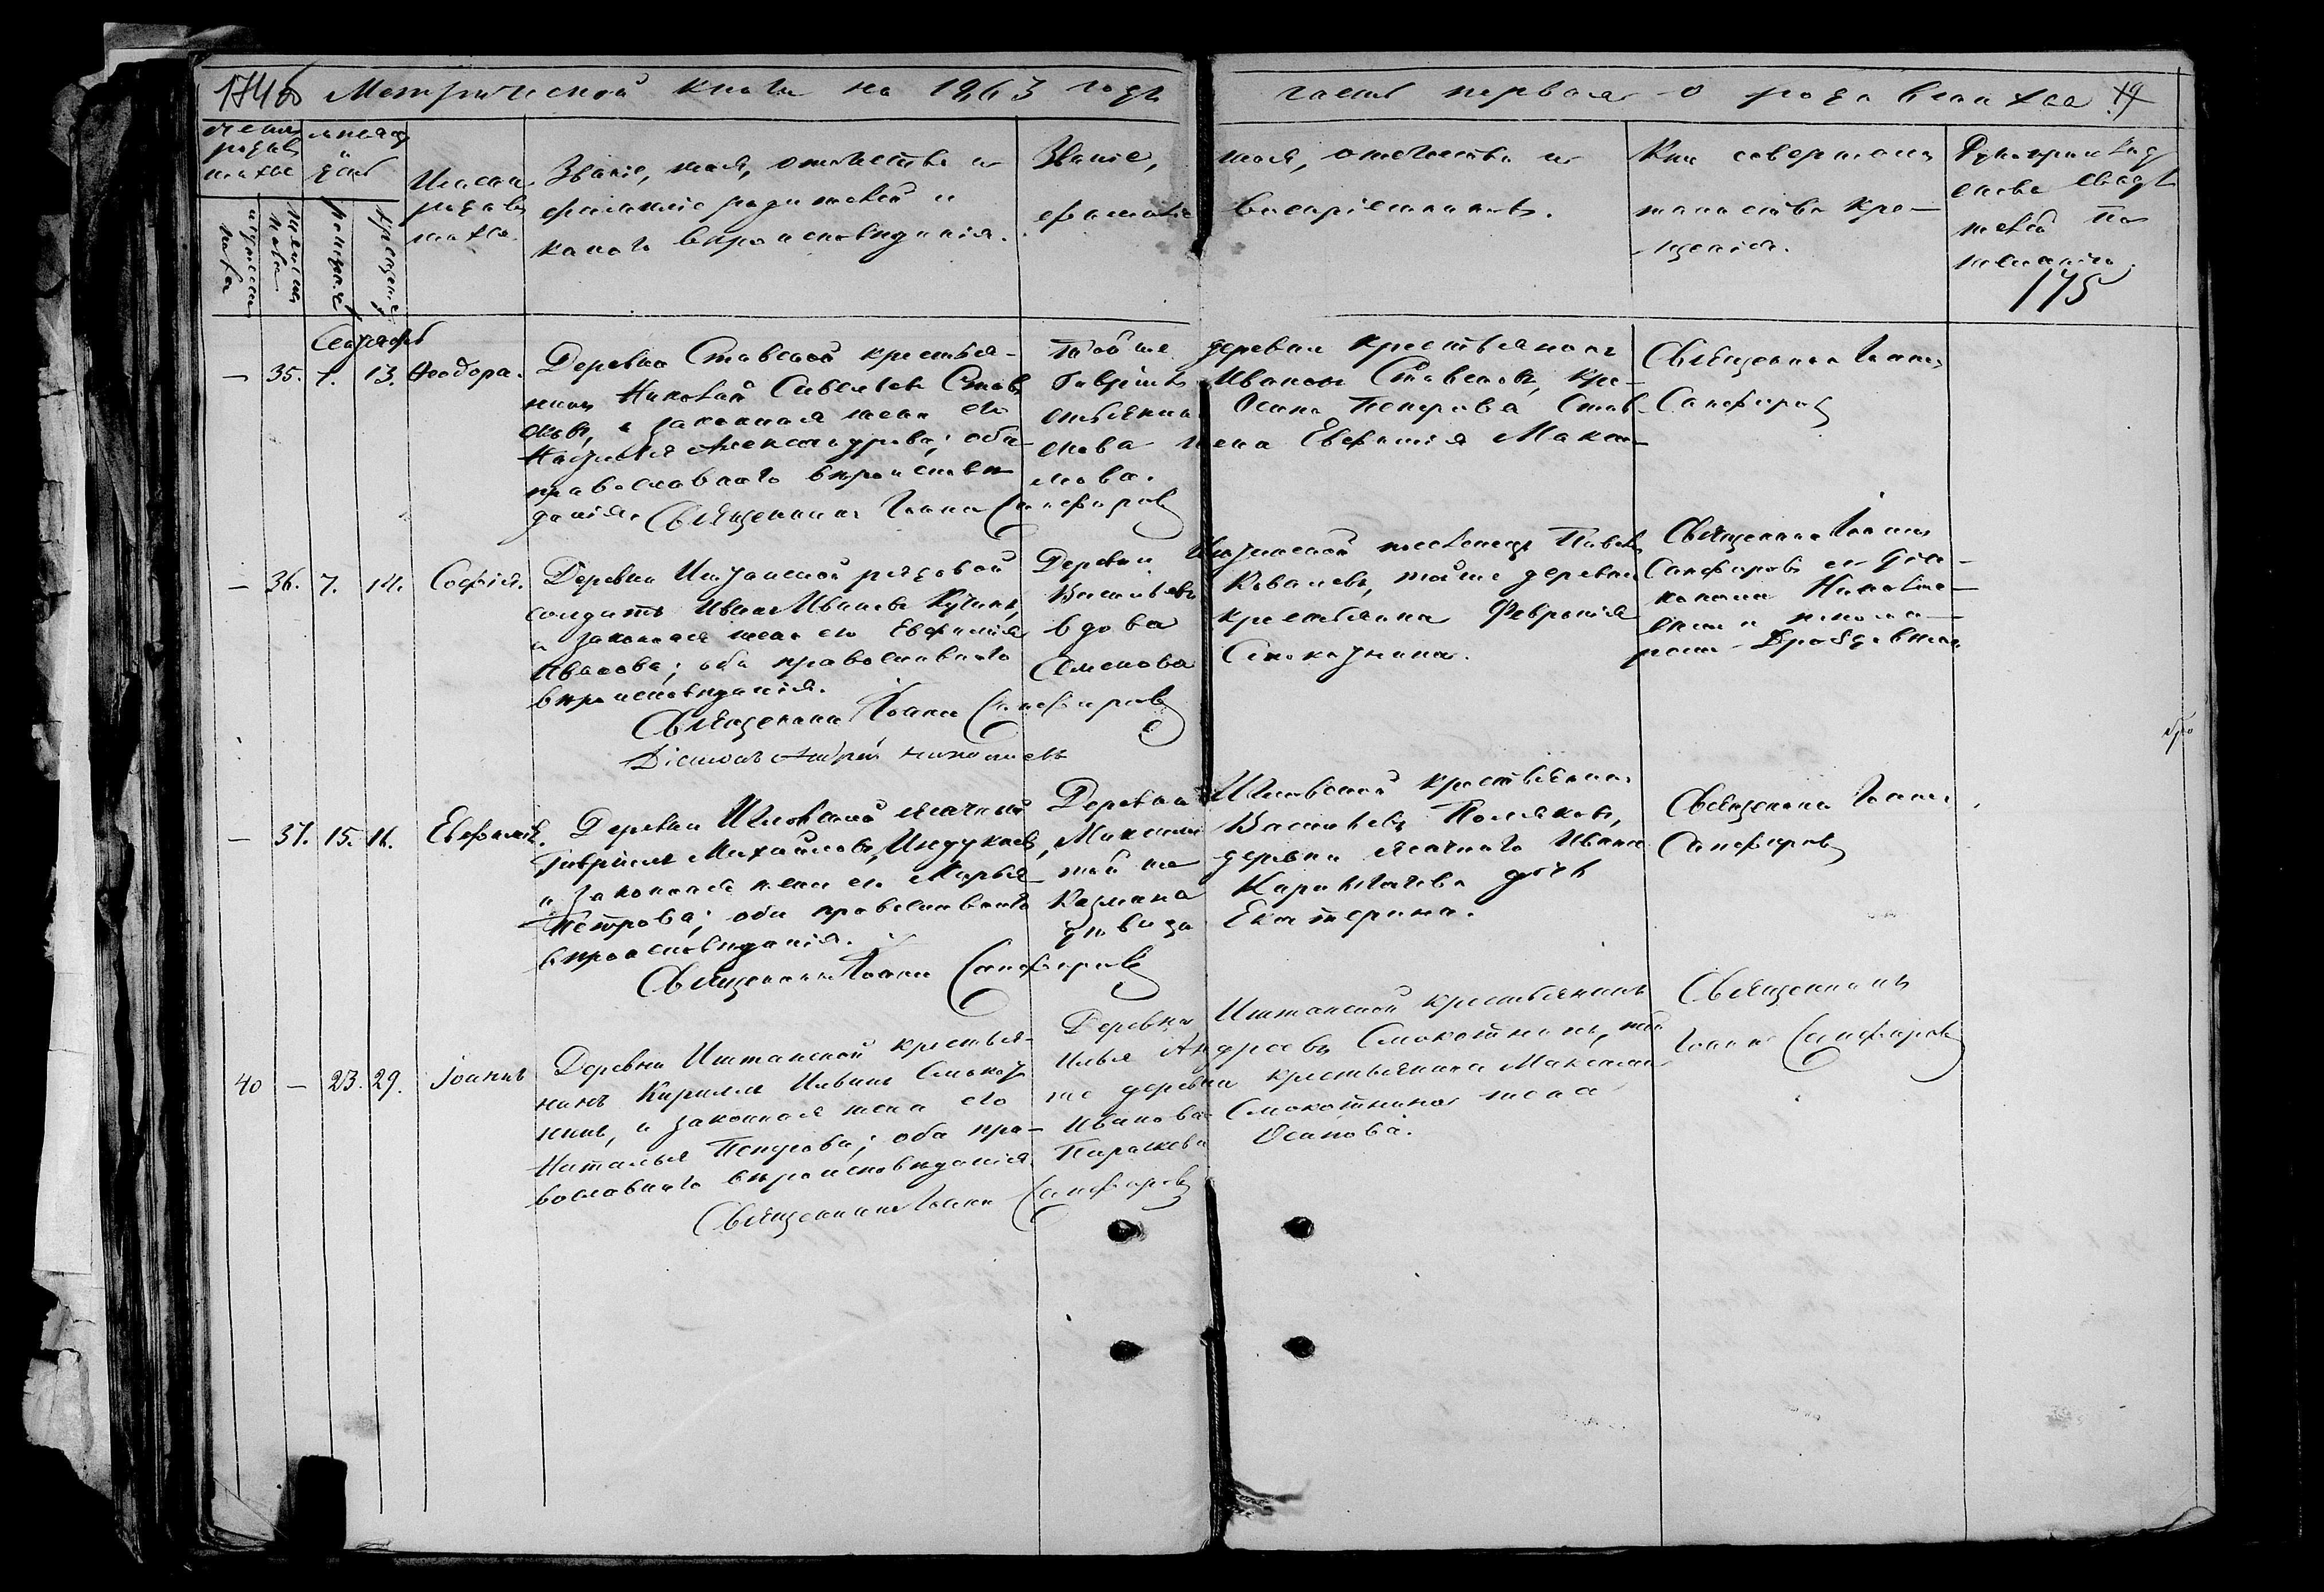 174об Метрической книги на 1863 годъ часть первая о родившихся 19
Счетъ родив шихся
Мѣсяцъ и день
мужеска пола
женска пола
рожденія
крещенія
Имена родив шихся
Званіе, имя, отечество и
фамилія родителей и
какого вѣроисповѣданія.
Званіе, имя, отечество и
фамилія воспріемниковъ.
Кто совершалъ
таинство кре-
щенія.
Рукоприклад
ство свидѣ
телей по
желанію.
175
— 35. 7. 13. Феодора.
Деревни Ставской крестья-
нинъ Николай Савельевъ Став
сковъ, и законная жена его
Наталья Александрова; оба
православнаго вѣроисповѣ
данія. Священникъ Іоаннъ Сапфировъ
Той же деревни крестьянинъ
Гавріилъ Ивановъ Ставсковъ, кре-
стьянина Осипа Петрова Став-
скова жена Евфимія Макси-
мова.
Священникъ Іоаннъ
Сапфировъ
— 36. 7. 14. Софія.
Деревни Иштанской рядовой
солдатъ Иванъ Ивановъ Кучинъ,
и законная жена его Евфимія
Иванова; оба православнаго
вѣроисповѣданія.
Священникъ Іоаннъ Сапфировъ
Діаконъ Андрей Николаевъ
Деревни поселенецъ Павелъ
Васильевъ Ковалевъ, той же деревни
вдова крестьянка Февронія
Семенова Смокотнина.
Священникъ Іоаннъ
Сапфировъ съ діа-
кономъ Николае-
вымъ и понома-
ремъ Дроздовымъ
— 37. 15. 16. Евфимія.
Деревни ясачный
Гавріилъ Михайловъ Индукаевъ,
и законная жена его Марья
Петрова; оба православнаго
вѣроисповѣданія.
Священникъ Іоаннъ Сапфировъ
Деревни крестьянинъ
Максимъ Васильевъ Поляковъ,
той же деревни ясачнаго Ивана
Козмина дочь
дѣвица Екатерина.
Священникъ Іоаннъ
Сапфировъ
40 — 23. 29. Іоаннъ
Деревни Иштанской крестья-
нинъ Кириллъ Ильинъ Смокот
нинъ, и законная жена его
Наталья Петрова; оба пра-
вославнаго вѣроисповѣданія.
Священникъ Іоаннъ Сапфировъ
Деревни Иштанской крестьянинъ
Илья Андреевъ Смокотнинъ, той
же деревни крестьянина Максима
Иванова Смокотнина жена
Параскева Осипова.
Священникъ
Іоаннъ Сапфировъ